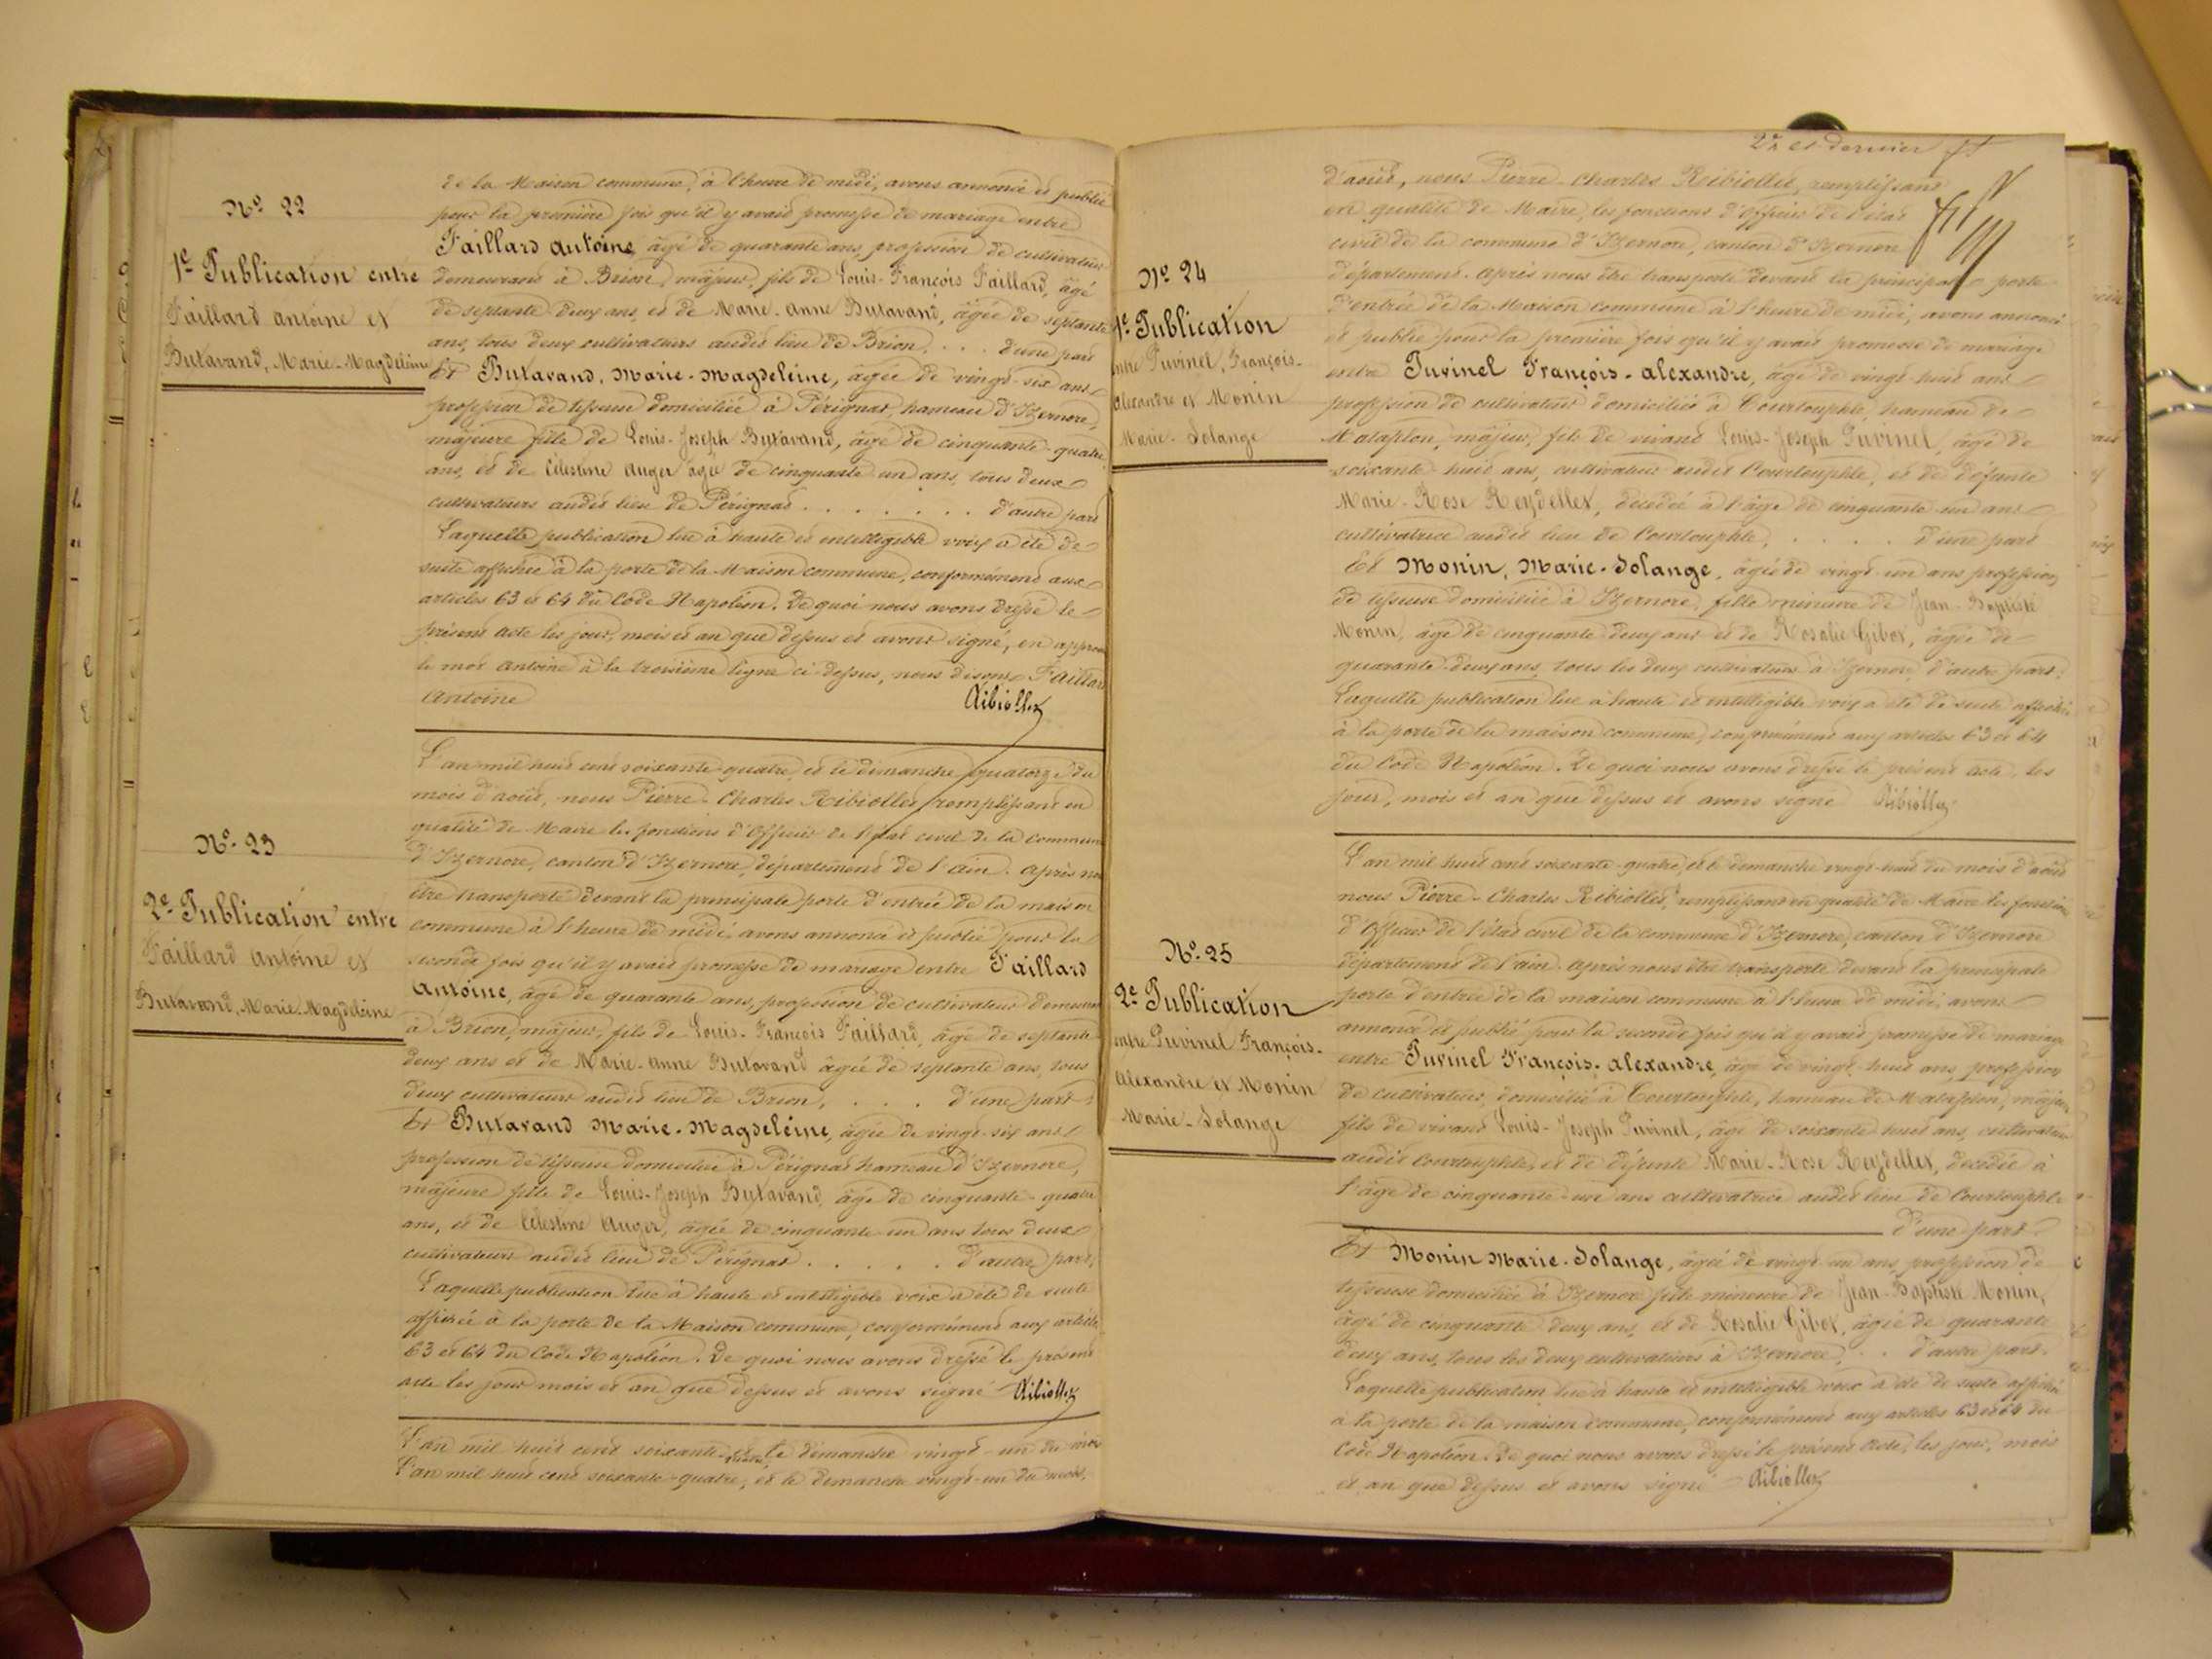 Nº 22
1e Publication entre
Faillard Antoine et
Butavand, Marie-Magdeleine
de la Maison commune, à l'heure de midi, avons annoncé et publié
pour la première fois qu'il y avait promesse de mariage entre
Faillard Antoine, âgé de quarante ans, profession de cultivateur
demeurant à Brion, majeur, fils de Louis-François Faillard, âgé
de septante deux ans, et de Marie-Anne Butavand, âgée de septante
ans, tous deux cultivateurs audit lieu de Brion, . . . d'une part
Et Butavand, Marie-Magdeleine, âgée de vingt-six ans
profession de tisseuse domiciliée à Pérignat, hameau d'Izernore,
majeure fille de Louis-Joseph Butavand, âgé de cinquante-quatre
ans, et de Célestine Auger âgée de cinquante un ans, tous deux
cultivateurs audit lieu de Pérignat . . . . . . . d'autre part
Laquelle publication lue à haute et intelligible voix a été de
suite affichée à la porte de la Maison commune, conformément aux
articles 63 et 64 du Code Napoléon. De quoi nous avons dressé le
présent acte les jour, mois et an que dessus et avons signé, en
le mot Antoine à la troisième ligne ci-dessus, nous disons Faillard
Antoine Ribiollet
Nº 23
2e Publication entre
Faillard Antoine et
Butavand, Marie-Magdeleine
L'an mil huit cent soixante-quatre, et le dimanche quatorze du
mois d'août, nous Pierre-Charles Ribiollet remplissant en
qualité de Maire les fonctions d'Officier de l'état civil de la commune
d'Izernore, canton d'Izernore, département de l'ain. après nous
être transporté devant la principale porte d'entrée de la maison
commune à l'heure de midi, avons annoncé et publié pour la
seconde fois qu'il y avait promesse de mariage entre Faillard
Antoine, âgé de quarante ans, profession de cultivateur demeurant
à Brion, majeur, fils de Louis-François Faillard, âgé de septante
deux ans et de Marie-Anne Butavand âgée de septante ans, tous
deux cultivateurs audit lieu de Brion, . . . d'une part
Et Butavand Marie-Magdeleine, âgée de vingt-six ans
profession de tisseuse domiciliée à Pérignat hameau d'Izernore,
majeure fille de Louis-Joseph Butavand, âgé de cinquante-quatre
ans, et de Célestine Auger, âgée de cinquante-un ans tous deux
cultivateurs audit lieu de Pérignat . . . . . d'autre part.
Laquelle publication lue à haute et intelligible voix a été de suite
affichée à la porte de la Maison commune, conformément aux articles
63 et 64 du Code Napoléon. De quoi nous avons dressé le présent
acte les jour mois et an que dessus et avons signé Ribiollet
L'an mil huit cent soixante le dimanche vingt-un du mois
L'an mil huit cent soixante-quatre, et le dimanche vingt-un du mois,
2e et dernier
Nº 24
1e Publication
entre Puvinel, François-
Alexandre et Monin
Marie-Solange
d'août, nous Pierre-Charles Ribiollet, remplissant
en qualité de Maire, les fonctions d'Officier de l'état
civil de la commune d'Izernore, canton d'Izernore
département. après nous être transporté devant la principale porte
d'entrée de la Maison commune à l'heure de midi, avons annoncé
et publié pour la première fois qu'il y avait promesse de mariage
entre Puvinel François-Alexandre, âgé de vingt-huit ans
profession de cultivateur domicilié à Courtouphle, hameau de
Matafelon, majeur, fils de vivant Louis-Joseph Puvinel, âgé de
soixante huit ans, cultivateur audit Courtouphle, et de défunte
Marie-Rose Reydellet, décédée à l'âge de cinquante-un ans
cultivatrice audit lieu de Courtouphle, . . . . d'une part
Et Monin, Marie-Solange, âgée de vingt-un ans profession
de tisseuse domiciliée à Izernore, fille mineure de Jean-Baptiste
Monin, âgé de cinquante deux ans et de Rosalie Gibot, âgée de
quarante-deux ans, tous les deux cultivateurs à Izernore, d'autre part.
Laquelle publication lue à haute et intelligible voix a été de suite affichée
à la porte de la maison commune, conformément aux articles 63 et 64
du Code Napoléon. De quoi nous avons dressé le présent acte, les
jour, mois et an que dessus et avons signé Ribiollet
Nº 25
2e Publication
entre Puvinel François-
Alexandre et Monin
Marie-Solange
L'an mil huit cent soixante-quatre, et le dimanche vingt-huit du mois d'août
nous Pierre-Charles Ribiollet, remplissant en qualité de Maire les fonctions
d'Officier de l'état civil de la commune d'Izernore, canton d'Izernore
département de l'ain. après nous être transporté devant la principale
porte d'entrée de la maison commune à l'heure de midi, avons
annoncé et publié pour la seconde fois qu'il y avait promesse de mariage
entre Puvinel François-Alexandre, âgé de vingt-huit ans, profession
de cultivateur, domicilié à Courtouphle, hameau de Matafelon, majeur
fils de vivant Louis-Joseph Puvinel, âgé de soixante huit ans, cultivateur
audit Courtouphle, et de défunte Marie-Rose Reydellet, décédée à
l'âge de cinquante-un ans cultivatrice audit lieu de Courtouphle
d'une part
Et Monin Marie-Solange, âgée de vingt-un ans, profession de
tisseuse domiciliée à Izernore fille mineure de Jean-Baptiste Monin,
âgé de cinquante deux ans, et de Rosalie Gibot, âgée de quarante
deux ans, tous les deux cultivateurs à Izernore, . . d'autre part.
Laquelle publication lue à haute et intelligible voix a été de suite affichée
à la porte de la maison commune, conformément aux articles 63 et 64 du
Code Napoléon. De quoi nous avons dressé le présent acte, les jour, mois
et an que dessus et avons signé Ribiollet